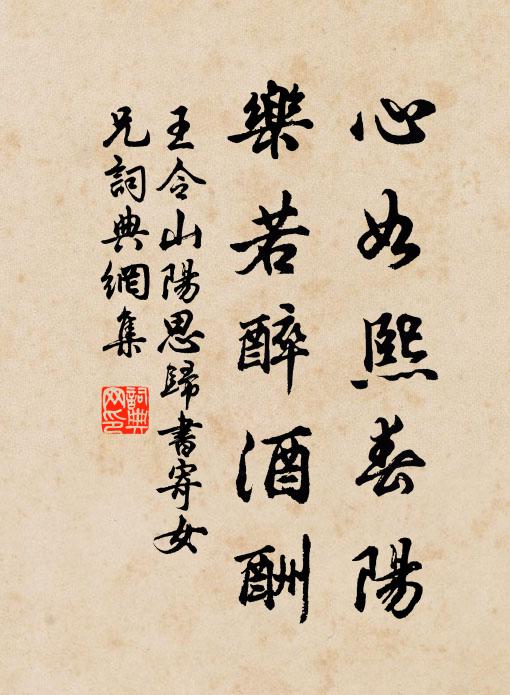 心如熙春陽
樂若醉酒酬
王令山陽思歸書寄女
兄詞典網集
詞典
网印